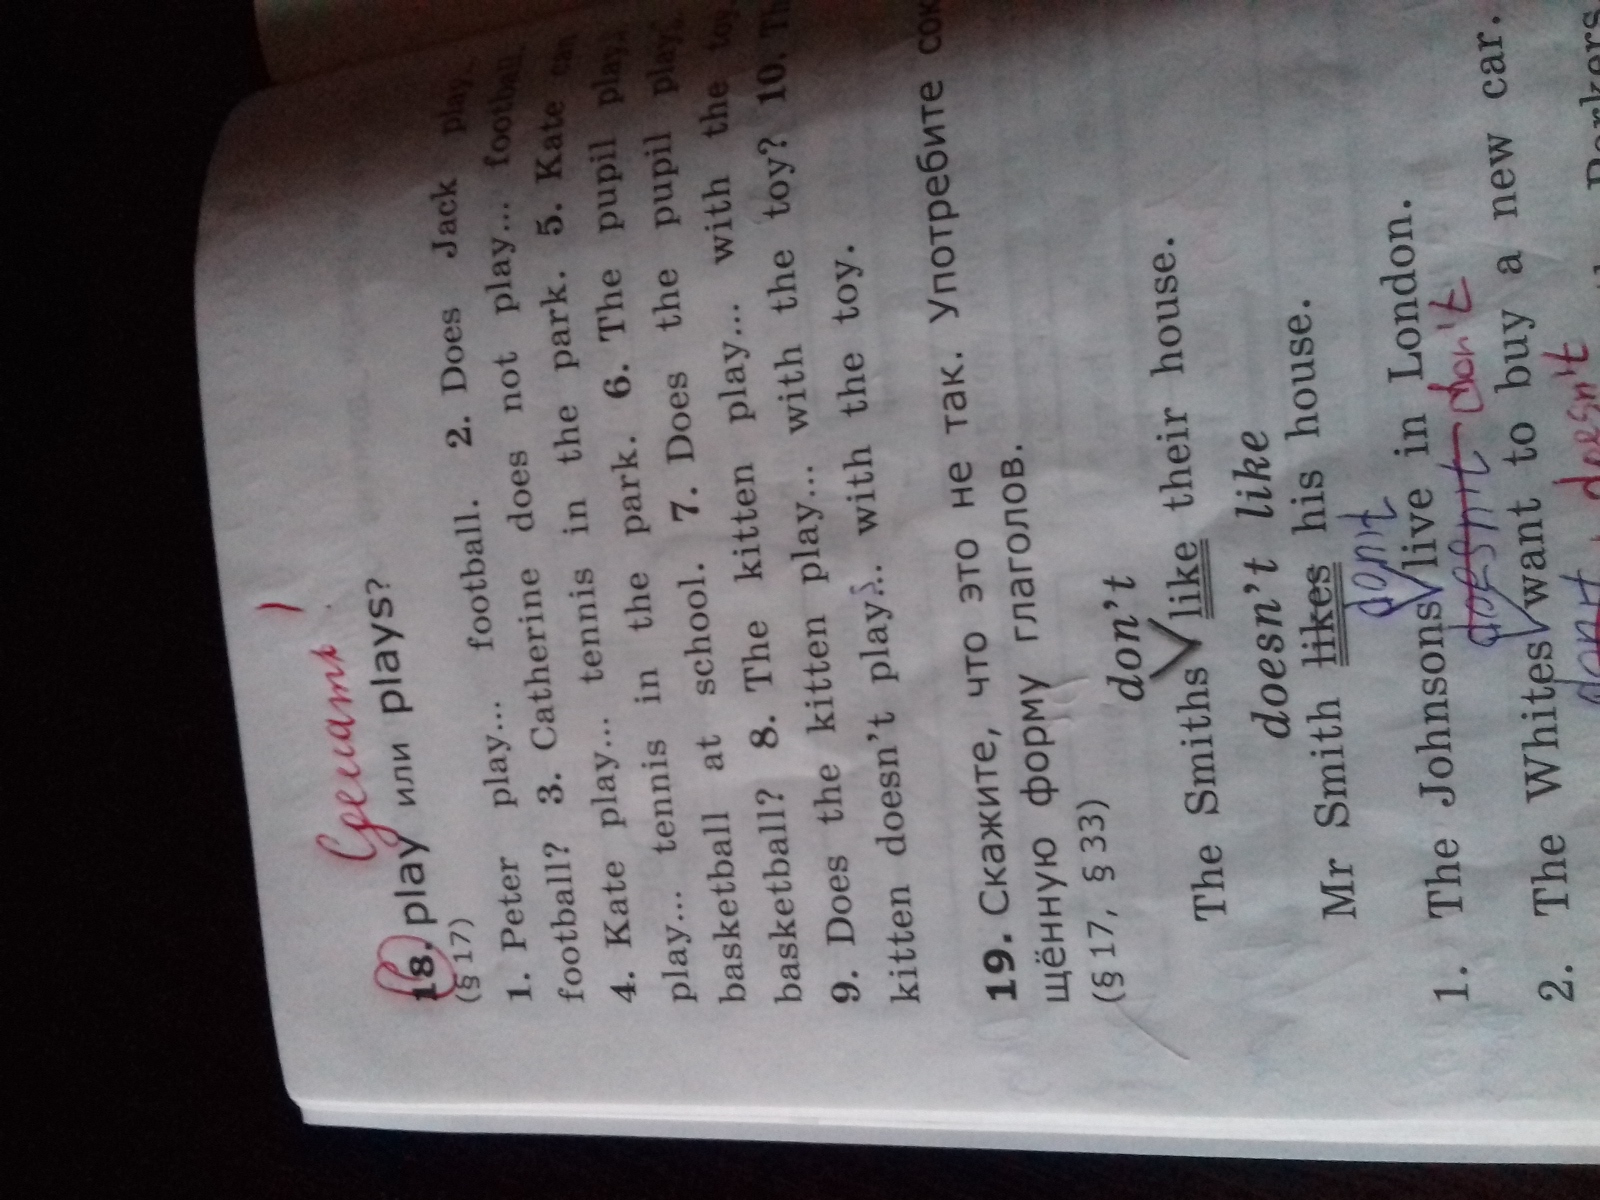 Сделать!
18. play или plays?
(§ 17)
1. Peter play... football. 2. Does Jack play...
football? 3. Catherine does not play... football.
4. Kate play... tennis in the park. 5. Kate can
play... tennis in the park. 6. The pupil play...
basketball at school. 7. Does the pupil play...
basketball? 8. The kitten play... with the toy.
9. Does the kitten play... with the toy? 10. The
kitten doesn't play... with the toy.
19. Скажите, что это не так. Употребите сок
щённую форму глаголов.
(§ 17, § 33)
don't
The Smiths like their house.
doesn't like
Mr Smith likes his house.
don't
1. The Johnsons live in London.
doesn't don't
2. The Whites want to buy a new car.
don't doesn't